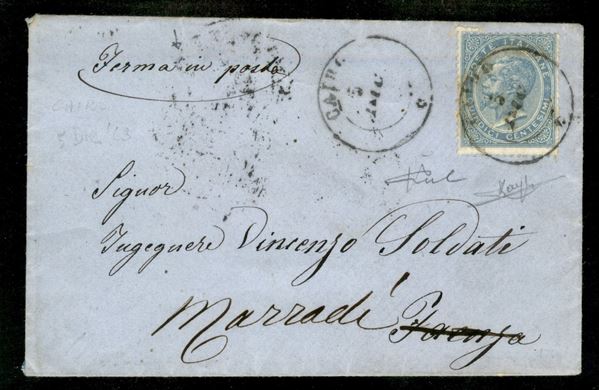 Ferma in posta
CAIRO
5 DIC
POSTE ITALIANE
QUINDICI CENTESIMI
CAIRO
5 DIC 63
Signor
Ingegnere Vincenzo Soldati
Marradi Faenza